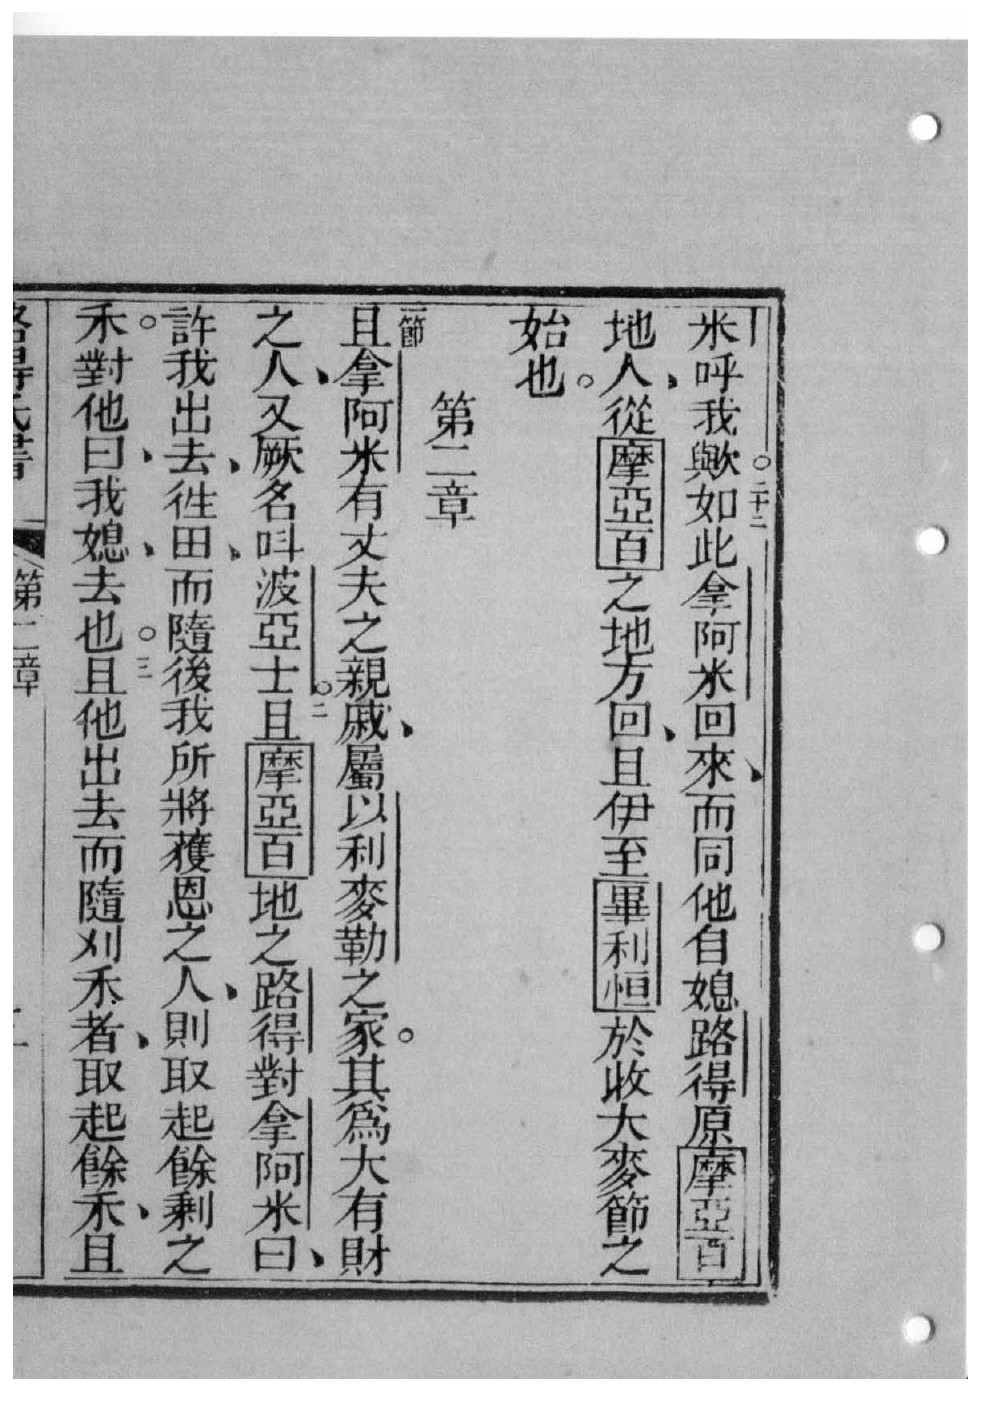 米呼我歟。二十二如此拿阿米回來、而同他自媳路得原摩亞百
地人、從摩亞百之地方回、且伊至畢利恒於收大麥節之
始也。
第二章
一節且拿阿米有丈夫之親戚、屬以利麥勒之家。其爲大有財
之人、又厥名呌波亞士。二且摩亞百地之路得對拿阿米曰、
許我出去、徃田、而隨後我所將獲恩之人、則取起餘剩之
禾。對他曰、我媳、去也。三且他出去而隨刈禾者、取起餘禾、且
路得氏書 第二章